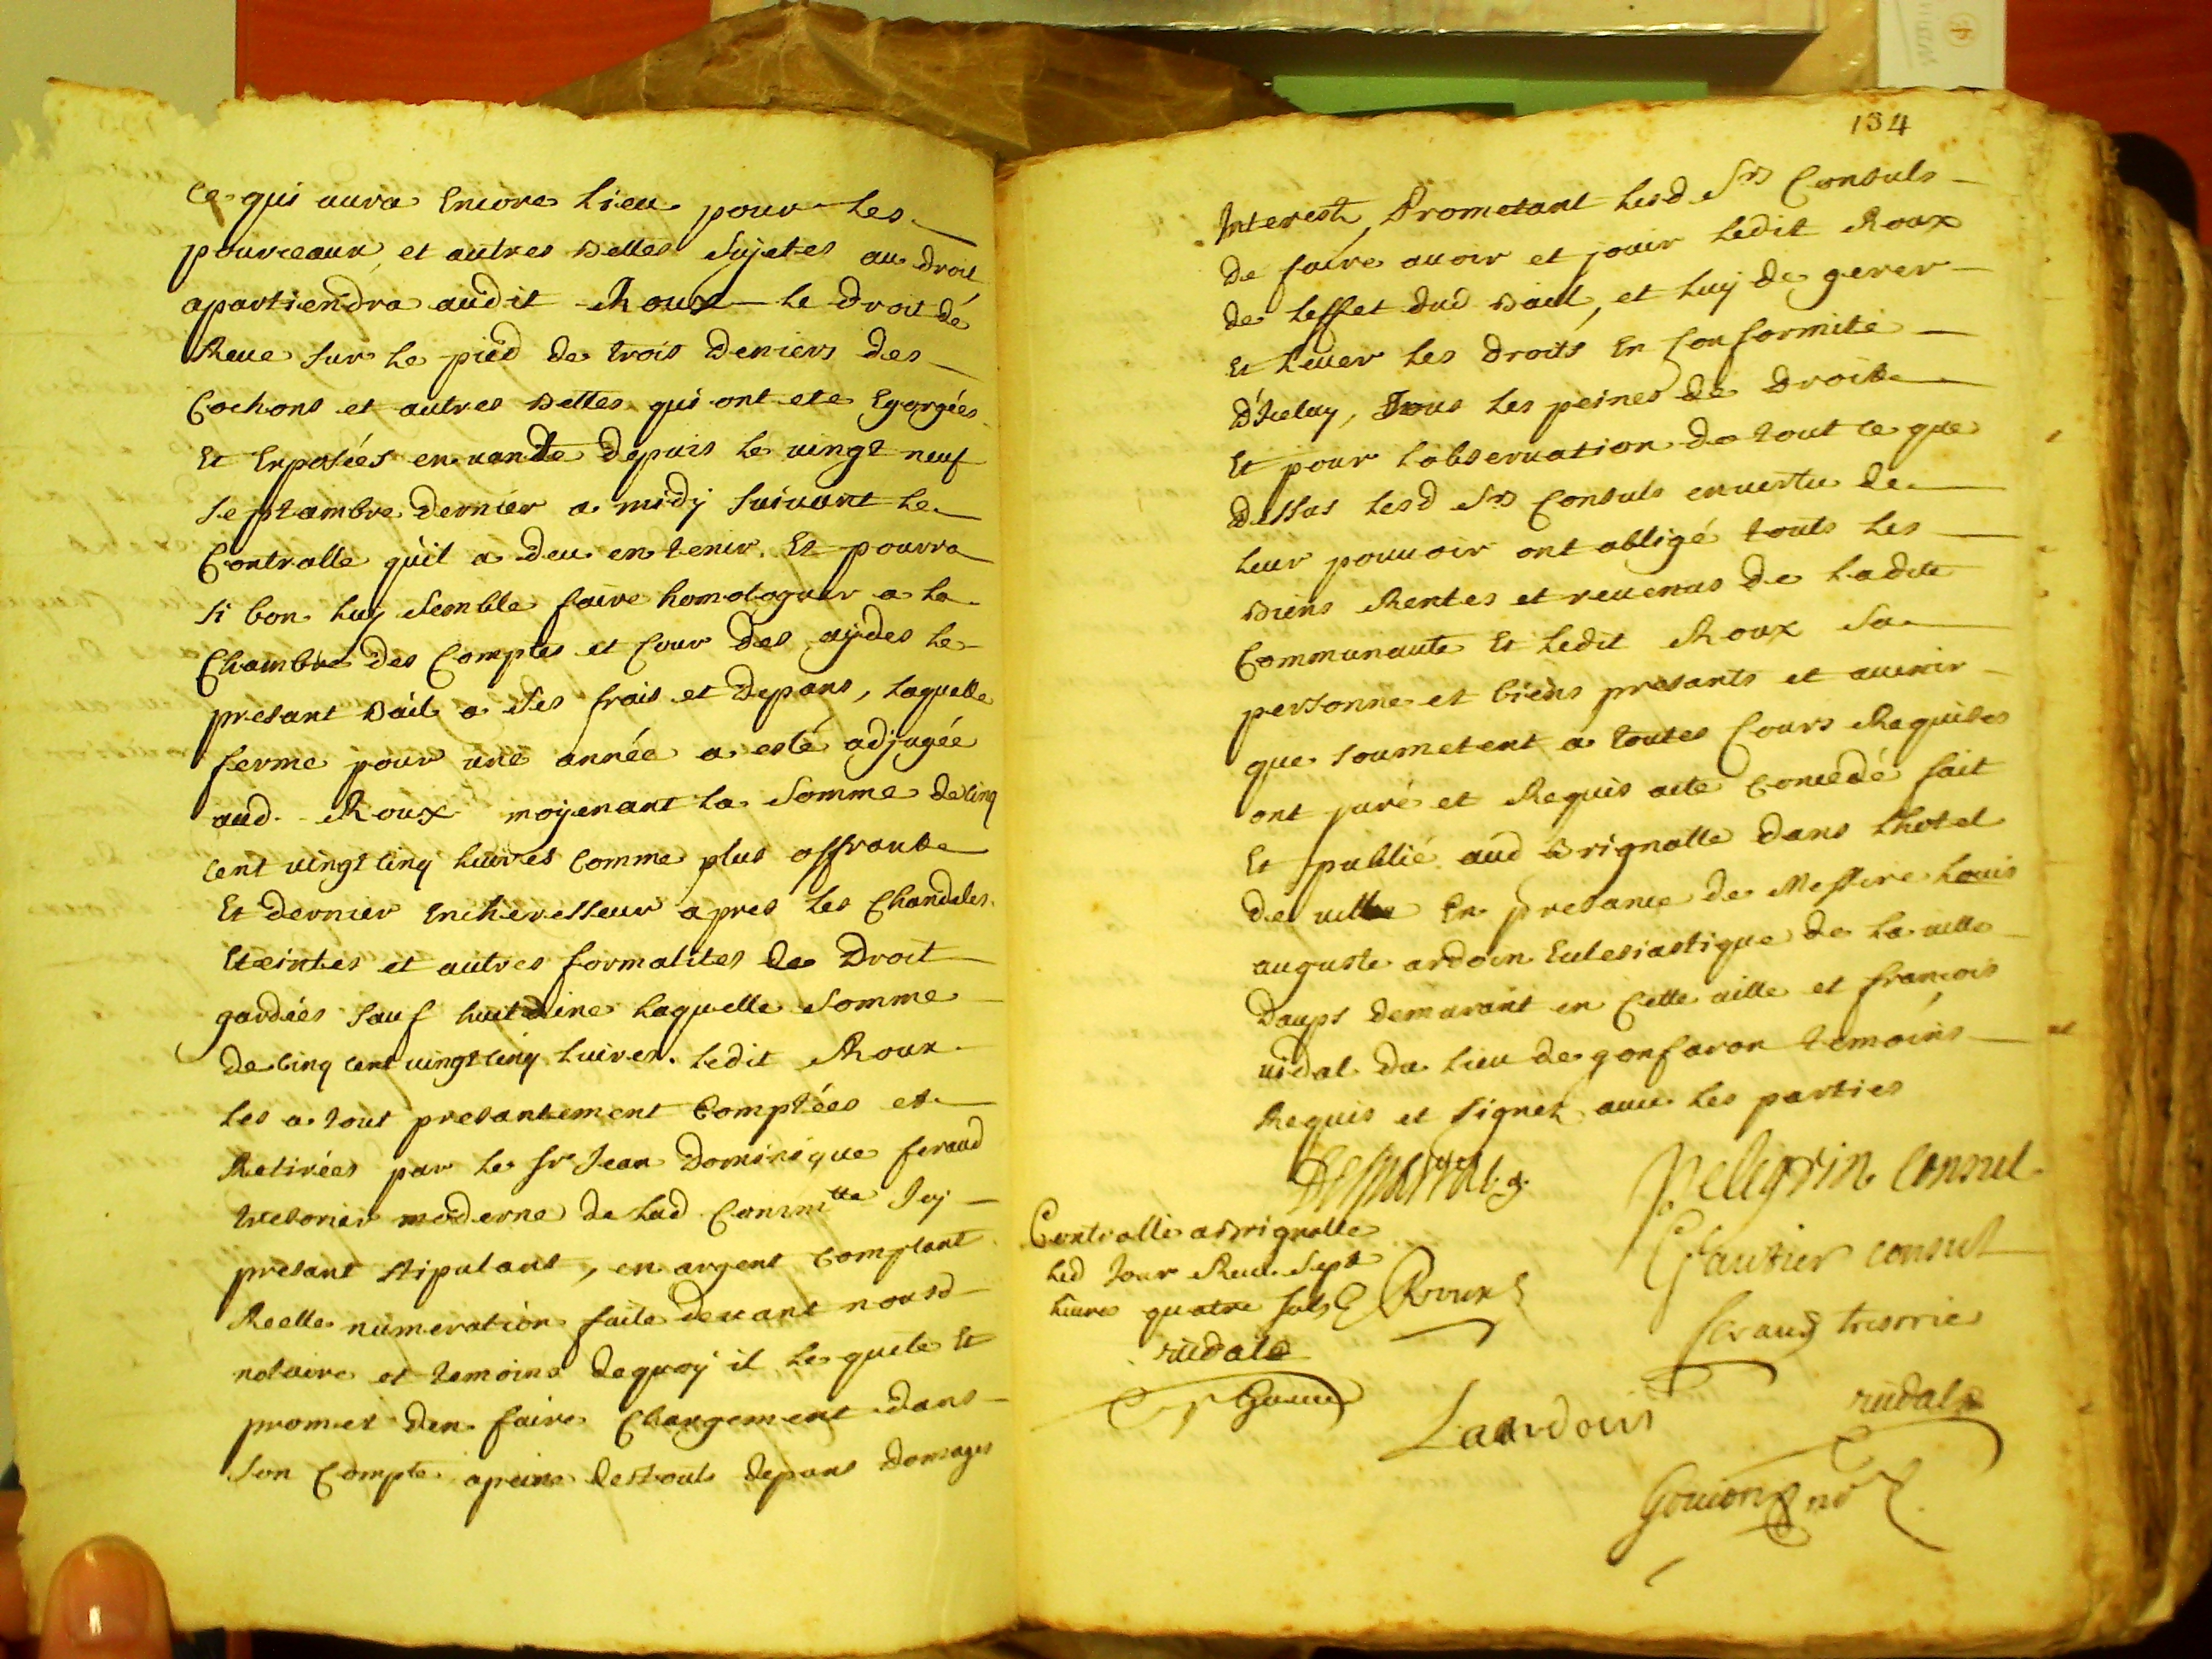 Ce qui aura Encore Lieu pour Les
pourceaux et autres Bettes Sujetes au droit
apartiendra audit Roux Le Droit de
Reue Sur Le pied de trois Deniers des
Cochons et autres Bettes qui ont eté Egorgées
Et Exposées en vante Depuis Le vingt neuf
Septambre dernier a midy Suivant Le
Contralle quil a deu en tenir. Et pourra
Si bon Luy Semble faire homologuer a La
Chambre des Comptes et Cour des aydes Le
presant Bail a Ses frais et Depans, Laquelle
ferme pour une année a esté adjugée
aud. Roux moyenant La Somme de Cinq
cent vingt cinq Liuvres Comme plus offrante
Et dernier Encheresseur apres Les Chandeles
Eteintes et autres formalites de Droit
gardées Sauf huitaine Laquelle Somme
de Cinq cent vingt cinq Luires. Ledit Roux
Les a tout presantement Comptées et
Retirées par Le Sr Jean Dominique feraud
tresorier moderne de Lad Commtte Icy
presant Stipulant, en argent Comptant
Reelle numeration faite devant nousd
notaire et temoins dequoy il Le quite Et
promet den faire Chargement dans
Son Compte a peine destouts depans domages
134
Interests, Prometant Lesd Srs Consuls
de faire avoir et jouir Ledit Roux
de Leffet dud Bail, et Luy de gerer
Et Lever Les droits En Conformité
D'Iceluy, Sous Les peines de Droit
Et pour Lobservation de tout ce que
Dessus Lesd Srs Consuls envertu de
Leur pouvoir ont obligé touts Les
Biens Rentes et revenus de Ladite
Communauté Et Ledit Roux Sa
personne et biens presants et avenir
que Soumetent a toutes Cours Requises
ont juré et Requis acte Concedé fait
Et publié aud Brignolle dans Lhotel
de ville En presance de Messire Louis
auguste ardoin Eclesiastique de La ville
Daups demurant en Cette ville et françois
vidal du Lieu de gonfaron temoins
Requis et Signez avec Les parties
Pelegrin Consul
Controllé a Brignolle
Led Jour Receu Sept
Liures quatre Sols
Gautier consul
Roux
feraud tresorie
Laardoin